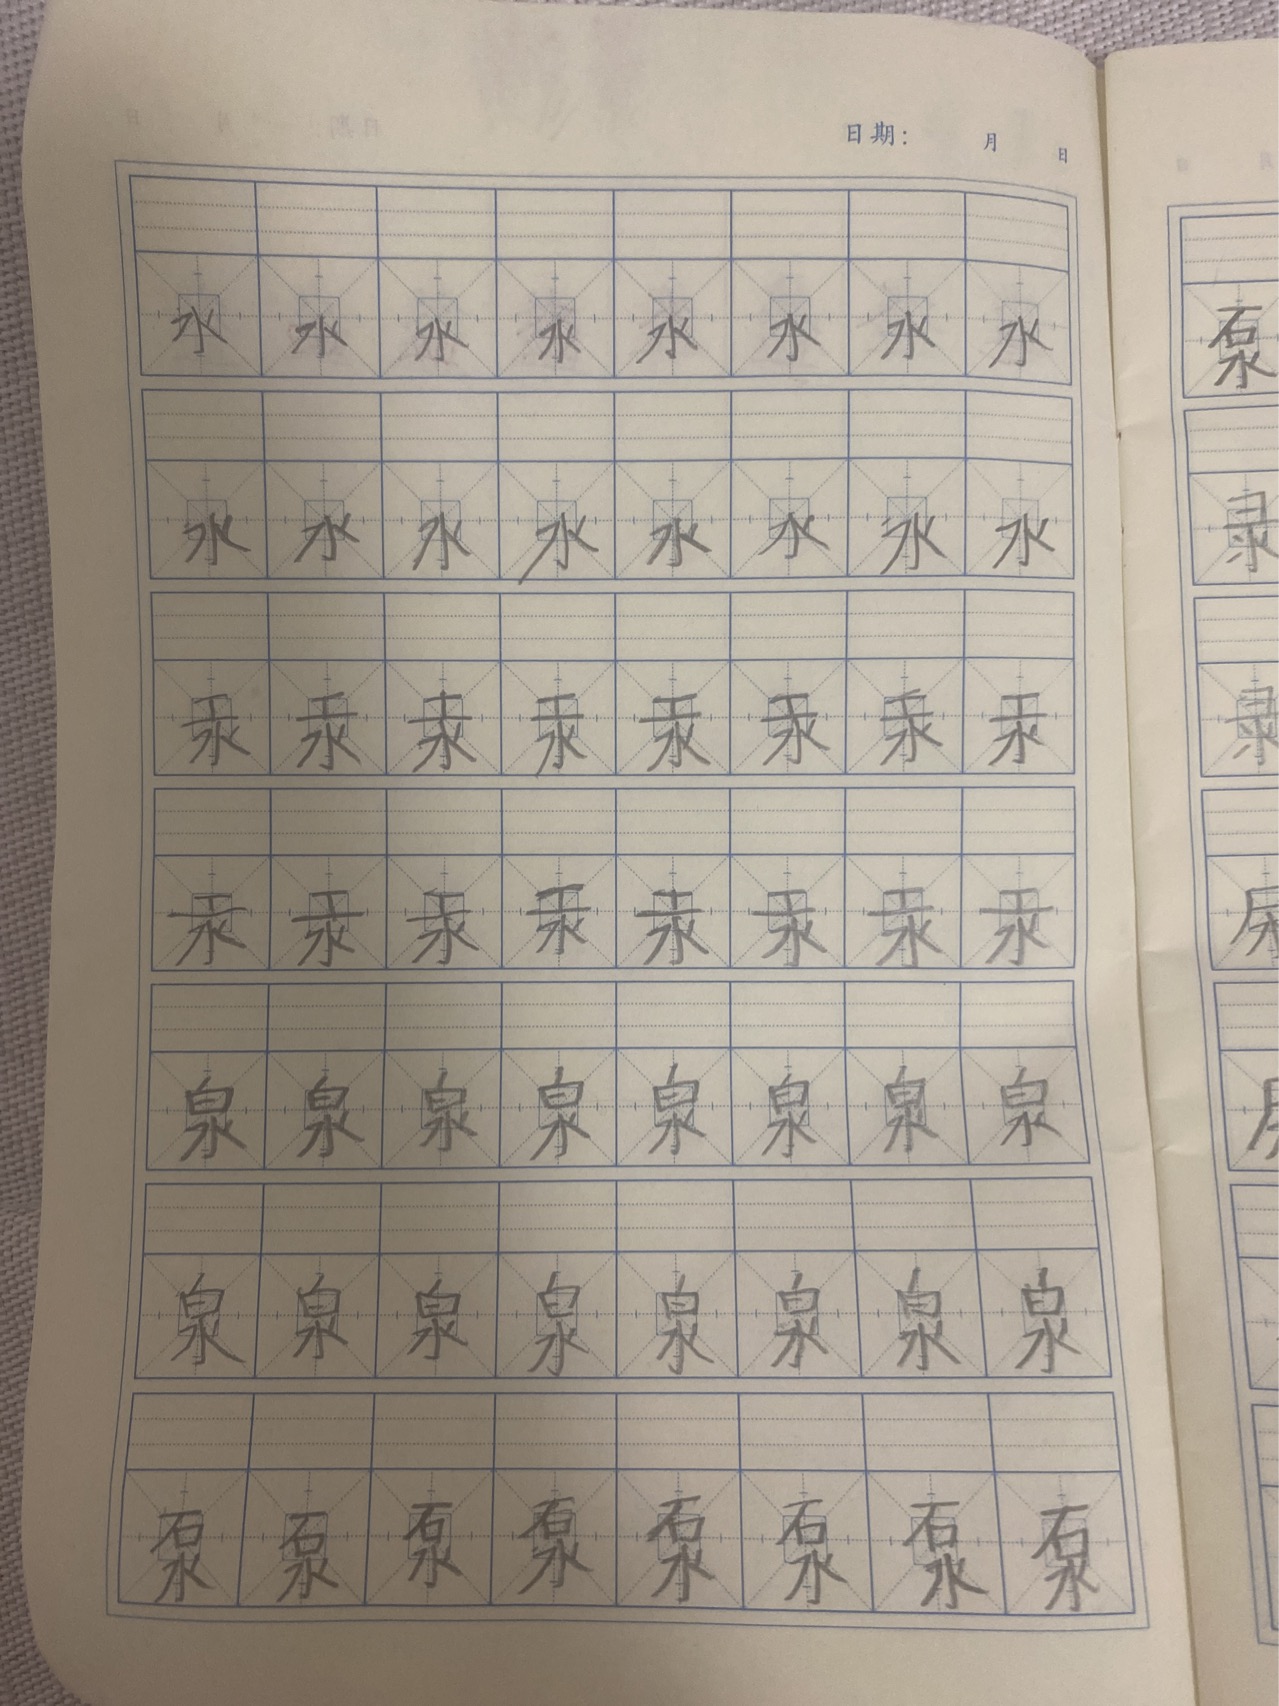 日期: 月 日
水 水 水 水 水 水 水 水
水 水 水 水 水 水 水 水
汞 汞 汞 汞 汞 汞 汞 汞
汞 汞 汞 汞 汞 汞 汞 汞
泉 泉 泉 泉 泉 泉 泉 泉
泉 泉 泉 泉 泉 泉 泉 泉
泵 泵 泵 泵 泵 泵 泵 泵
泵
录
录